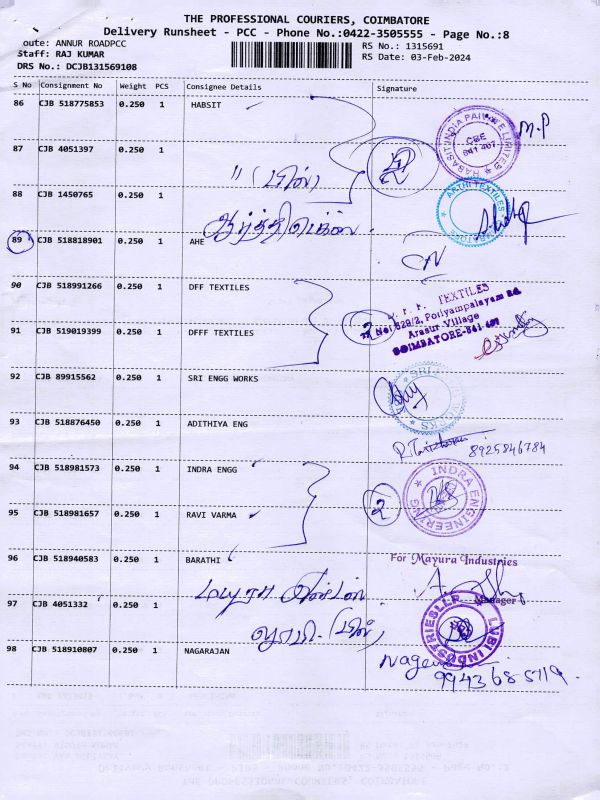 THE PROFESSIONAL COURIERS, COIMBATORE
Delivery Runsheet - PCC - Phone No.:0422-3505555 - Page No.:8
oute: ANNUR ROADPCC
Staff: RAJ KUMAR
DRS No.: DCJB131569108
RS No.: 1315691
RS Date: 03-Feb-2024
S No Consignment No Weight PCS Consignee Details Signature
86 CJB 518775853 0.250 1 HABSIT
HABASIT INDIA PRIVATE LIMITED
CBE
641 407
M.P
87 CJB 4051397 0.250 1
" (பின்)
12
88 CJB 1450765 0.250 1
ARTHI TEXTILES
ஆர்த்தி டெக்ஸ்
89 CJB 518818901 0.250 1 AHE
90 CJB 518991266 0.250 1 DFF TEXTILES
TEXTILES
No: 628/2, Pottiyampalayam Rd.
Arasur Village
COIMBATORE-641 407
91 CJB 519019399 0.250 1 DFFF TEXTILES
2
92 CJB 89915562 0.250 1 SRI ENGG WORKS
SRI
WORKS
93 CJB 518876450 0.250 1 ADITHIYA ENG
8925846784
94 CJB 518981573 0.250 1 INDRA ENGG
INDRA ENGINEERING
2
95 CJB 518981657 0.250 1 RAVI VARMA
96 CJB 518940583 0.250 1 BARATHI
For Mayura Industries
Manager
மயூரா இன்டஸ்
97 CJB 4051332 0.250 1
LMBI INDUSTRIES LLP
(பின்)
98 CJB 518910807 0.250 1 NAGARAJAN
99436 85119